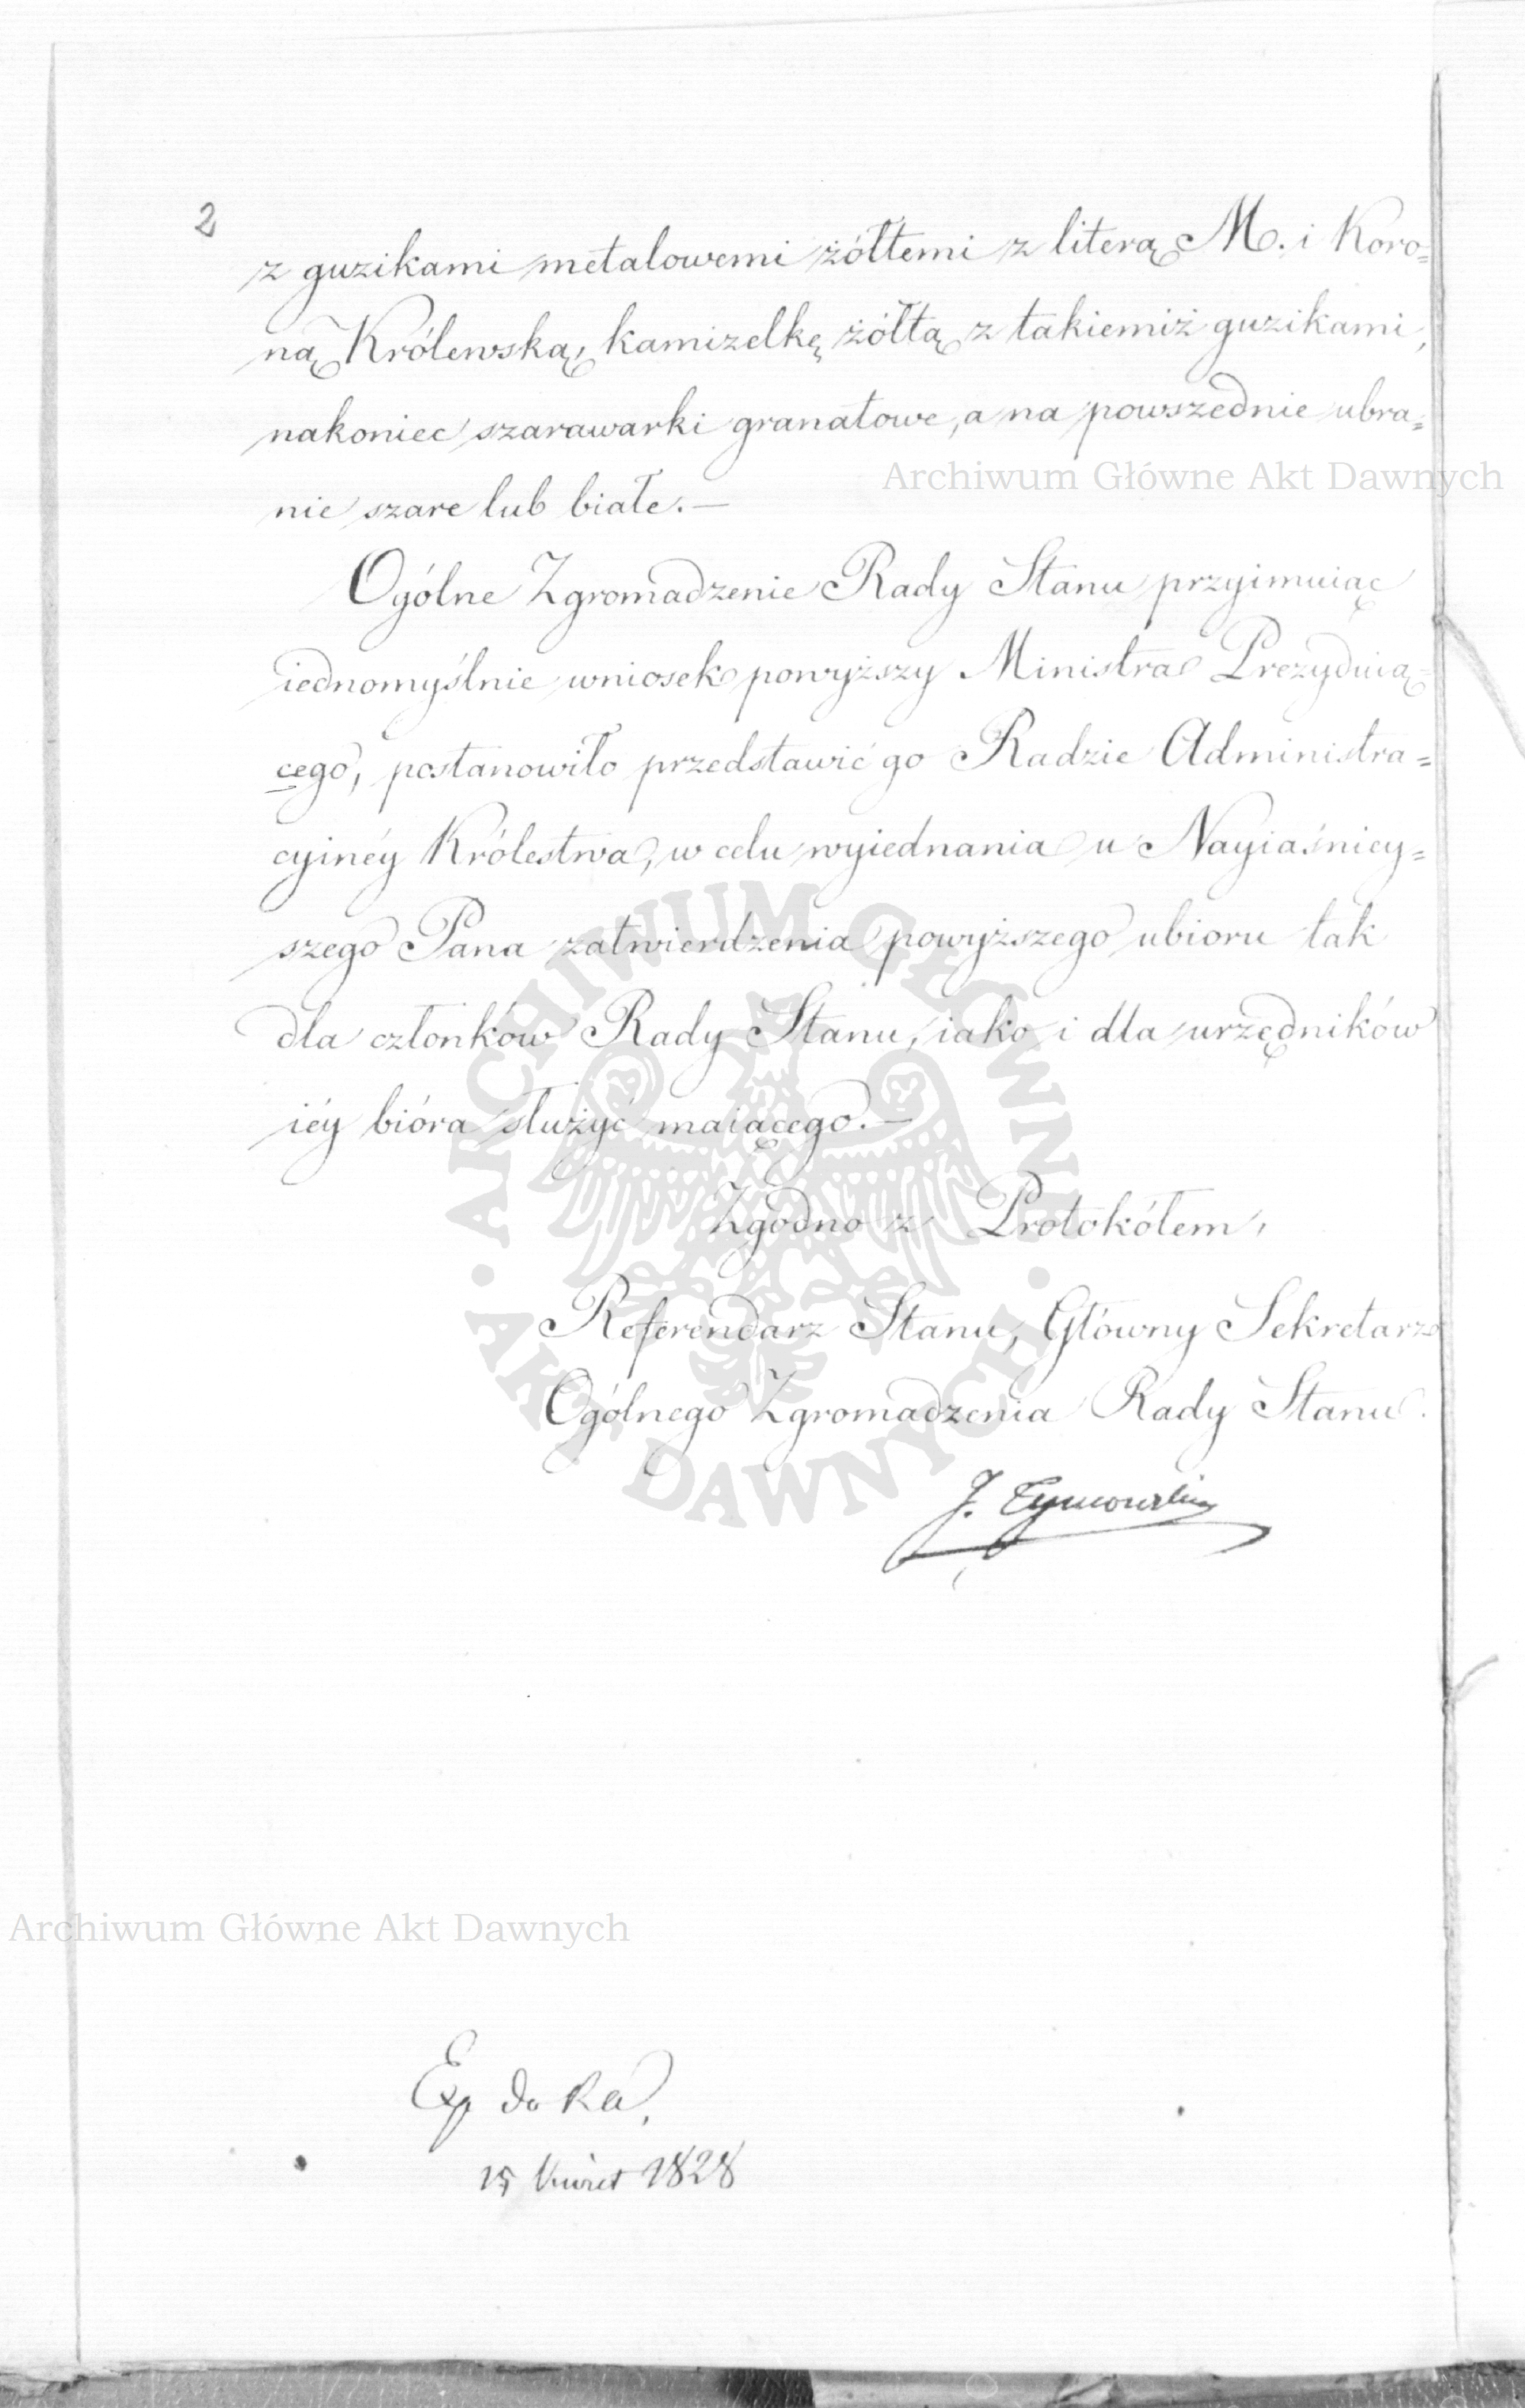 2
z guzikami metalowemi żółtemi z literą M. i Koro=
ną Królewską, kamizelkę żółtą z takiemiż guzikami,
nakoniec szarawarki granatowe, a na powszednie ubra=
Archiwum Główne Akt Dawnych
nie szare lub białe.—
Ogólne Zgromadzenie Rady Stanu przyimuiąc
iednomyślnie wniosek powyższy Ministra Prezyduią=
cego, postanowiło przedstawić go Radzie Administra=
cyinéy Królestwa, w celu wyiednania u Nayiaśniey=
szego Pana zatwierdzenia powyższego ubioru tak
dla członków Rady Stanu, iako i dla urzędników
iéy bióra służyć maiącego.—
Zgodno z Protokółem,
Referendarz Stanu, Główny Sekretarz
Ogólnego Zgromadzenia Rady Stanu.
J. Tymowski
ARCHIWUM GŁÓWNE · AKT DAWNYCH ·
Archiwum Główne Akt Dawnych
Exp do
15 Kwiet 1828